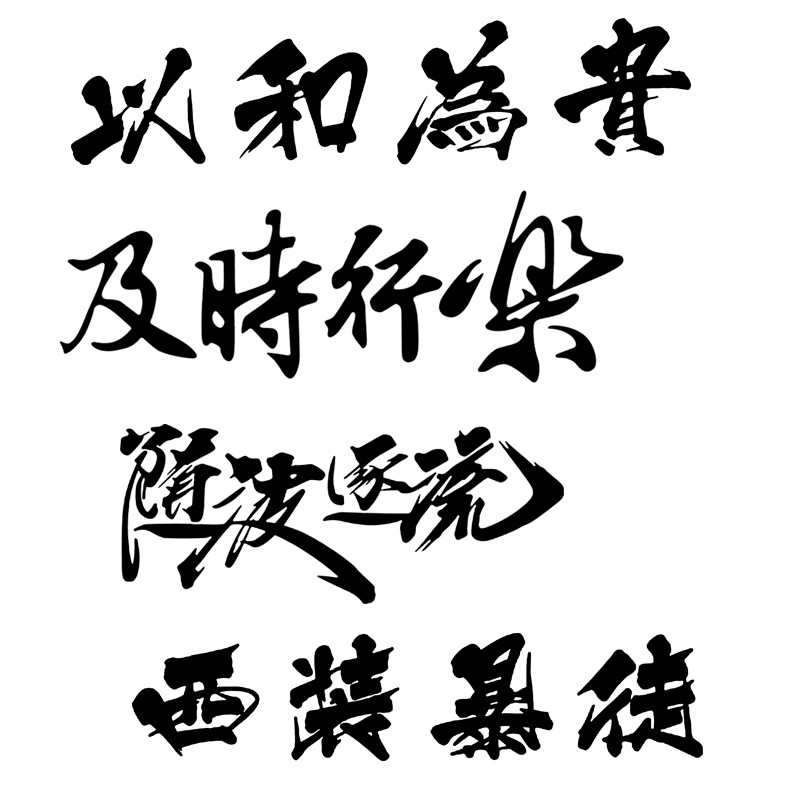 以和為貴
及時行楽
随波逐流
西装暴徒